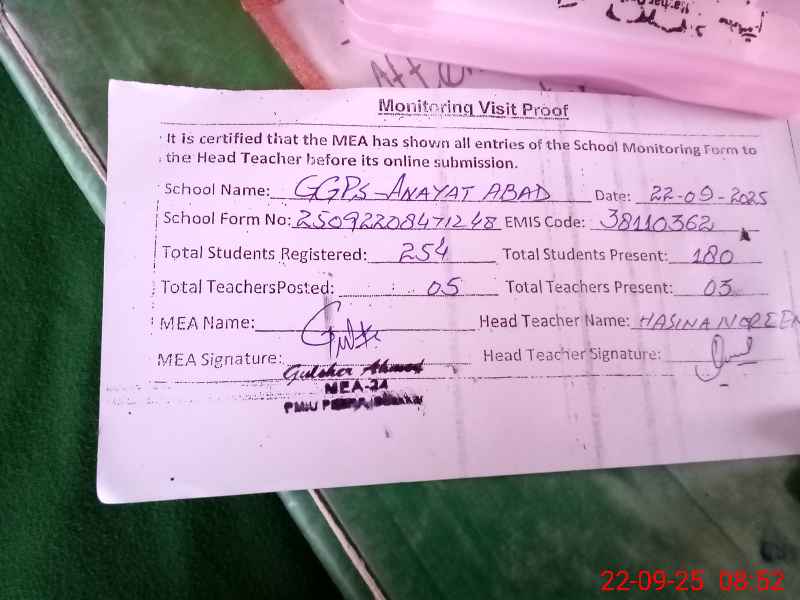 Atten
Monitoring Visit Proof
It is certified that the MEA has shown all entries of the School Monitoring Form to
the Head Teacher before its online submission.
School Name: GGPS-ANAYAT ABAD Date: 22-09-2025
School Form No: 25092208471248 EMIS Code: 38110362
Total Students Registered: 254 Total Students Present: 180
Total TeachersPosted: 05 Total Teachers Present: 03
MEA Name: Head Teacher Name: HASINA NOREEN
MEA Signature: Head Teacher Signature:
Gulsher Ahmed
MEA-24
PMIU
22-09-25 08:52